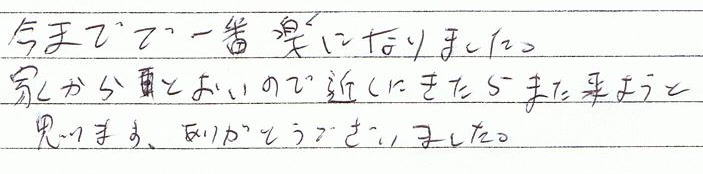 今までで一番楽になりました。
家から とおいので近くにきたらまた来ようと
思います、ありがとうございました。